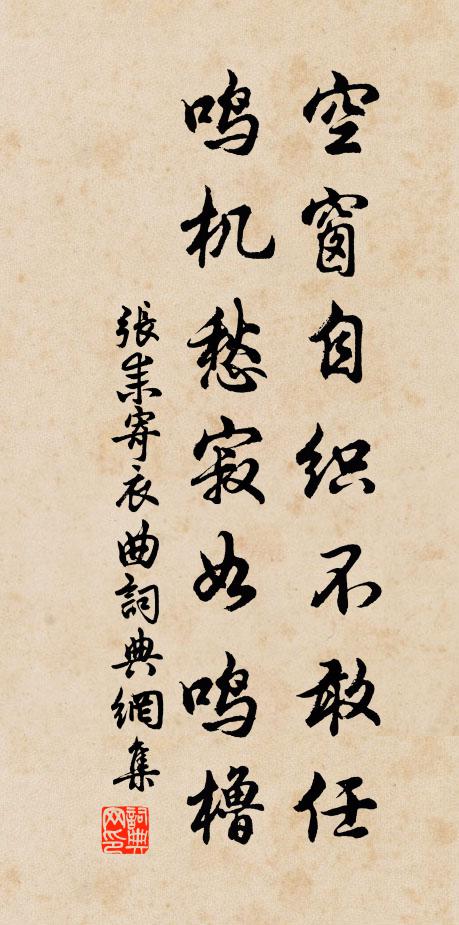 空窗自织不敢任
鸣机愁寂如鸣橹
張耒寄衣曲詞典網集
詞典
网印